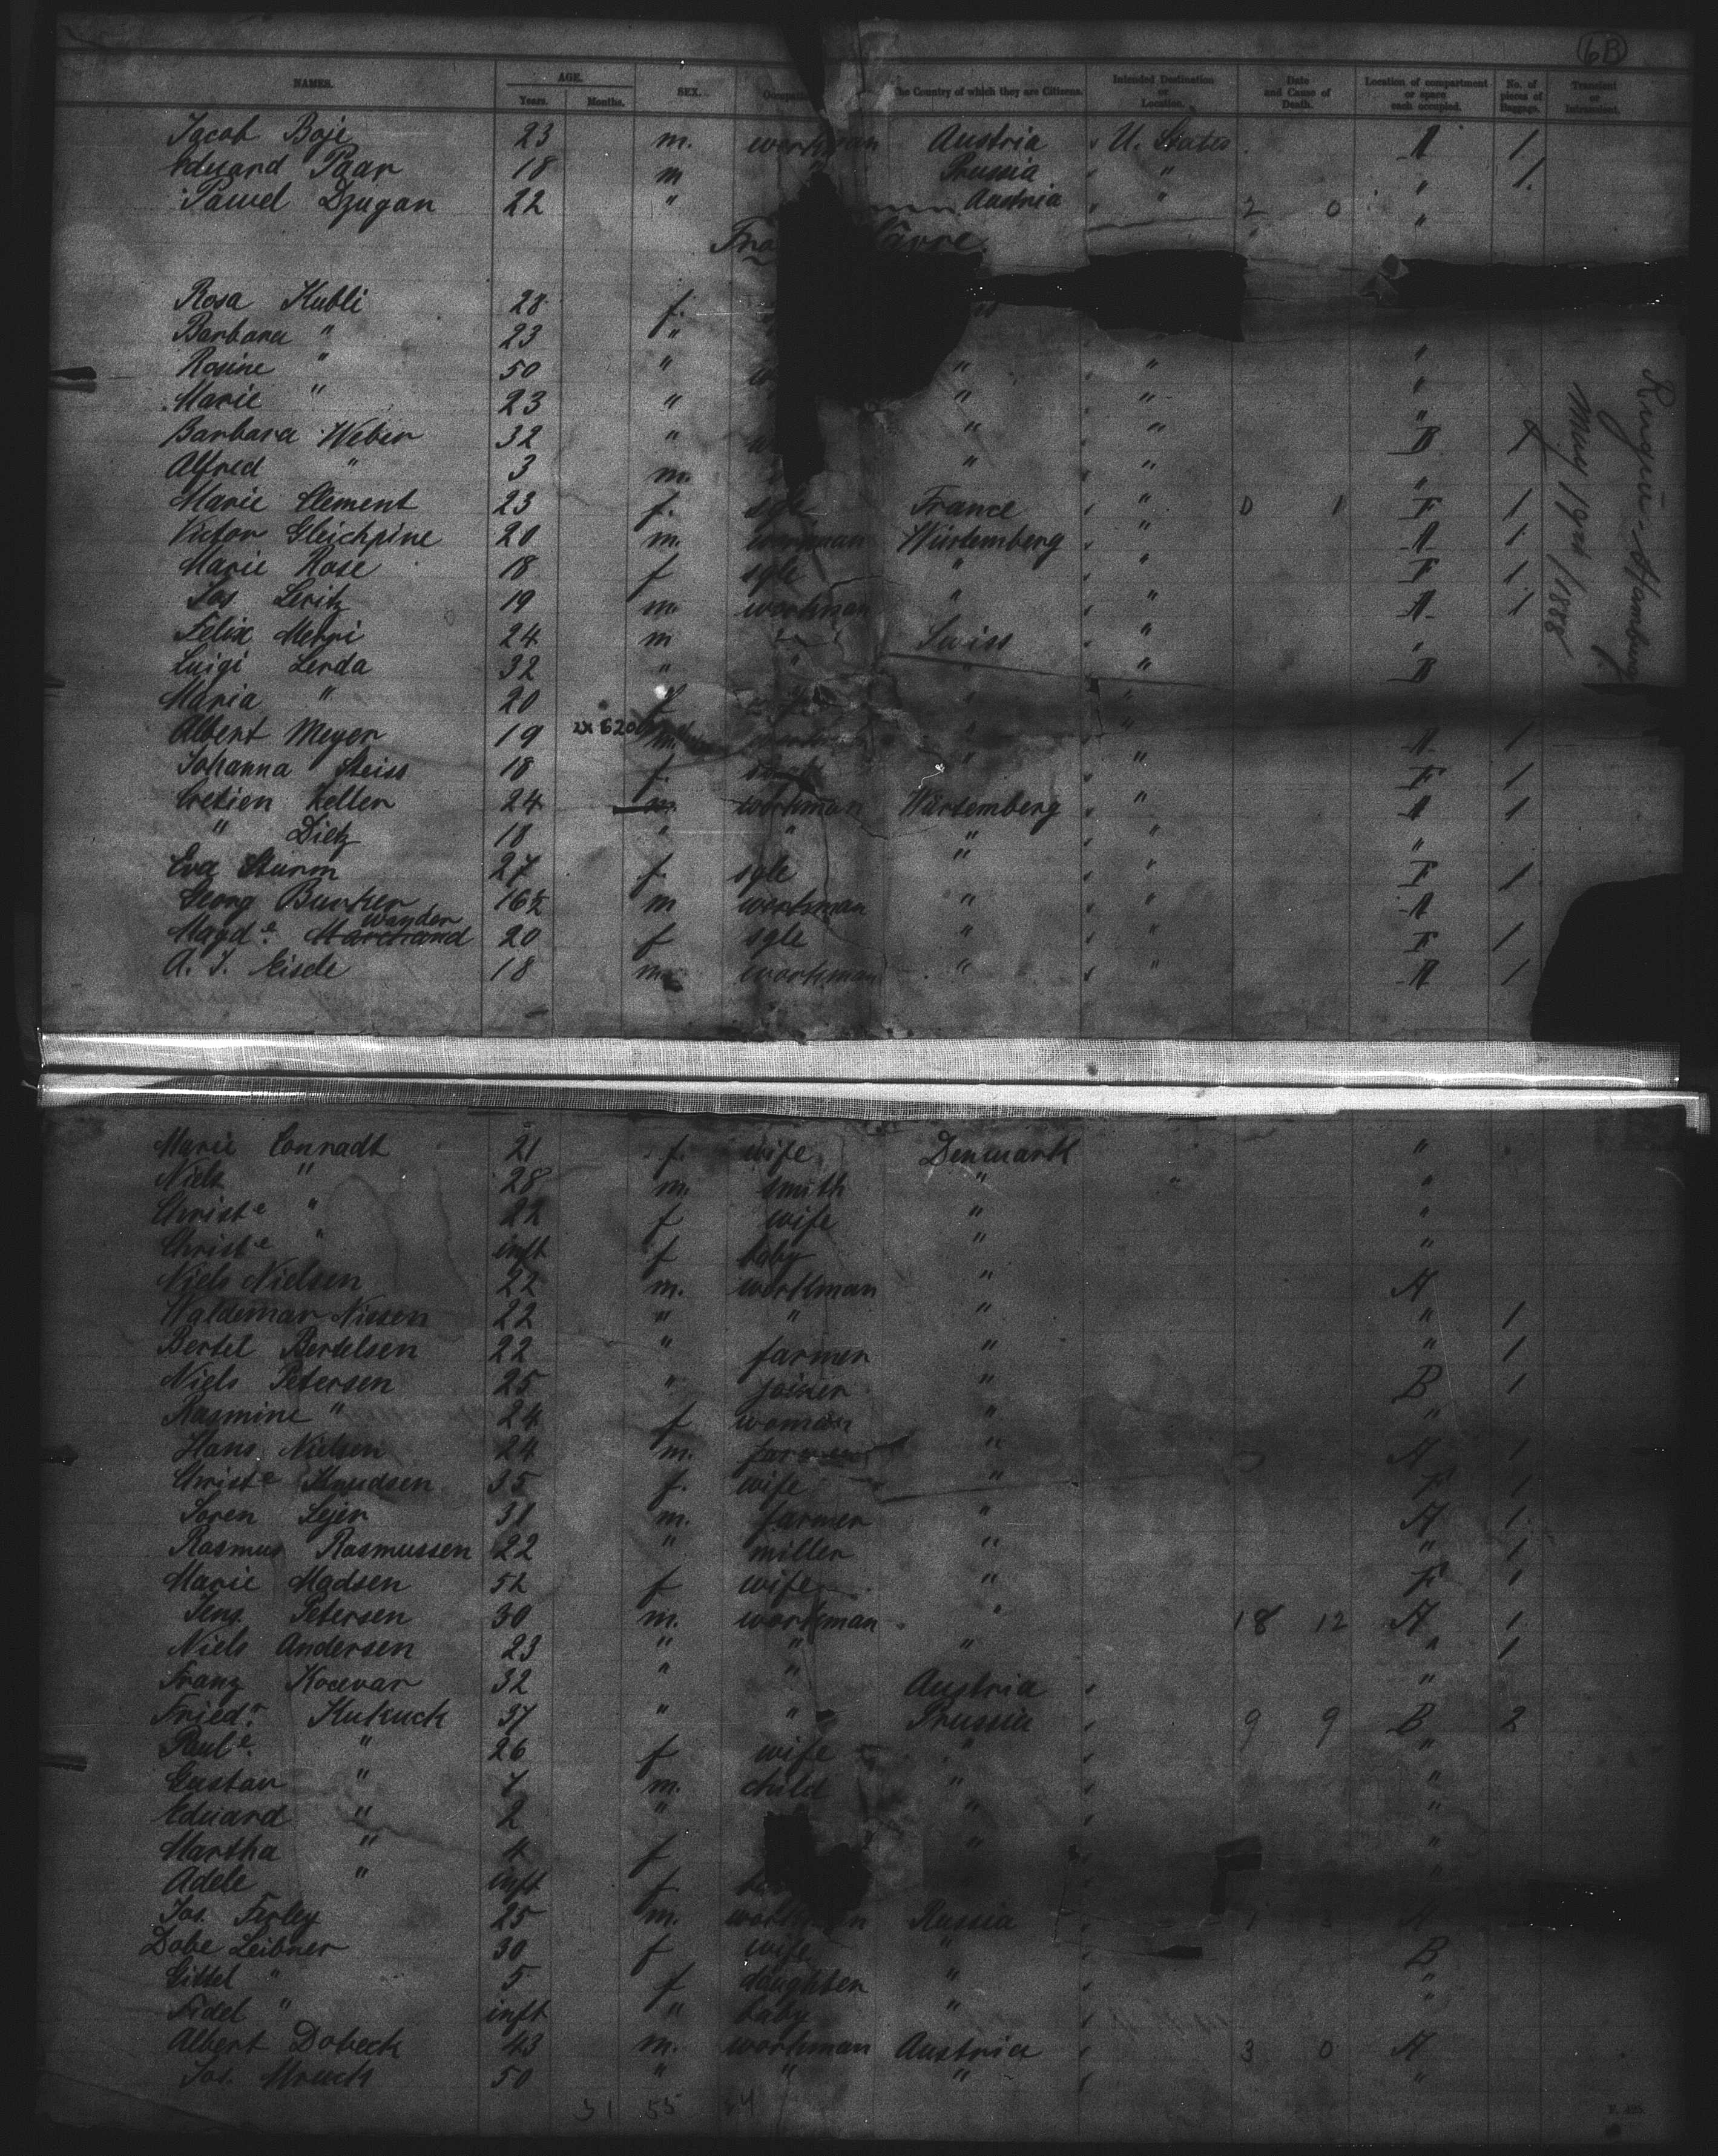 6B
NAMES. AGE. Years. Months. SEX. The Country of which they are Citizens. Intended Destination or Location. Date and Cause of Death. Location of compartment or space each occupied. No. of pieces of Baggage. Transient or Intransient.
Jacob Boje 23 m. workman Austria U. States A 1
Eduard Paar 18 m Prussia " " 1.
Pawel Dzugan 22 " Austria " 2 0 "
Havre
Rosa Kubli 28 f.
Barbara " 23 "
Rosine " 50 " " " "
Marie " 23 " " " "
Barbara Weber 32 " " " B 1
Alfred " 3 m. " " "
Marie Clement 23 f. sgle France " 0 1 F 1
Victor Gleichpine 20 m. workman Würtemberg " A 1
Marie Rose 18 f sgle " " F 1
Jos. Leritz 19 m. workman " " A 1
Felix Merri 24 m " Swiss " "
Luigi Lerda 32 " " " " B
Maria " 20 f " "
Albert Meyer 19 m. " " A 1
Johanna Steiss 18 f. " " F 1
Cretien Keller 24 m. workman Würtemberg " A 1
" Dietz 18 " " " " "
Eva Sturm 27 f. sgle " F 1
Georg Bunker 16½ m workman " " A
Magd.e Marchand wander 20 f sgle " " F 1
A. J. Eisele 18 m. workman " " A 1
Rugia - Hamburg
May 19th 1888
Marie Conradt 21 f. wife Denmark "
Niels " 28 m. smith " " "
Christe " 22 f wife " "
Christe " inft f baby " "
Niels Nielsen 22 m. workman " A
Waldemar Nissen 22 " " " " 1
Bertel Bertelsen 22 " farmer " " 1
Niels Petersen 25 " joiner " B 1
Rasmine " 24 f woman " "
Hans Nielsen 24 m. farmer " A 1
Christe Knudsen 35 f. wife " F 1
Soren Lejer 31 m. farmer " A 1.
Rasmus Rasmussen 22 " miller " " 1
Marie Madsen 52 f wife " F 1
Jens Petersen 30 m. workman " 18 12 A 1
Niels Andersen 23 " " " " 1
Franz Kocevar 32 " " Austria "
Friedr. Kukuck 37 " " Prussia 9 9 B 2
Paule. " 26 f wife " "
Gustav " 7 m. child " "
Eduard " 2 " " "
Martha " 4 f " "
Adele " inft f.
Jos. Firley 25 m. workman Russia A
Dobe Leibner 30 f wife " B
Gittel " 5 f daughter " "
Fidel " inft " baby "
Albert Dobeck 43 m. workman Austria 3 0 A
Jos. Mruck 50 " " " "
51 55